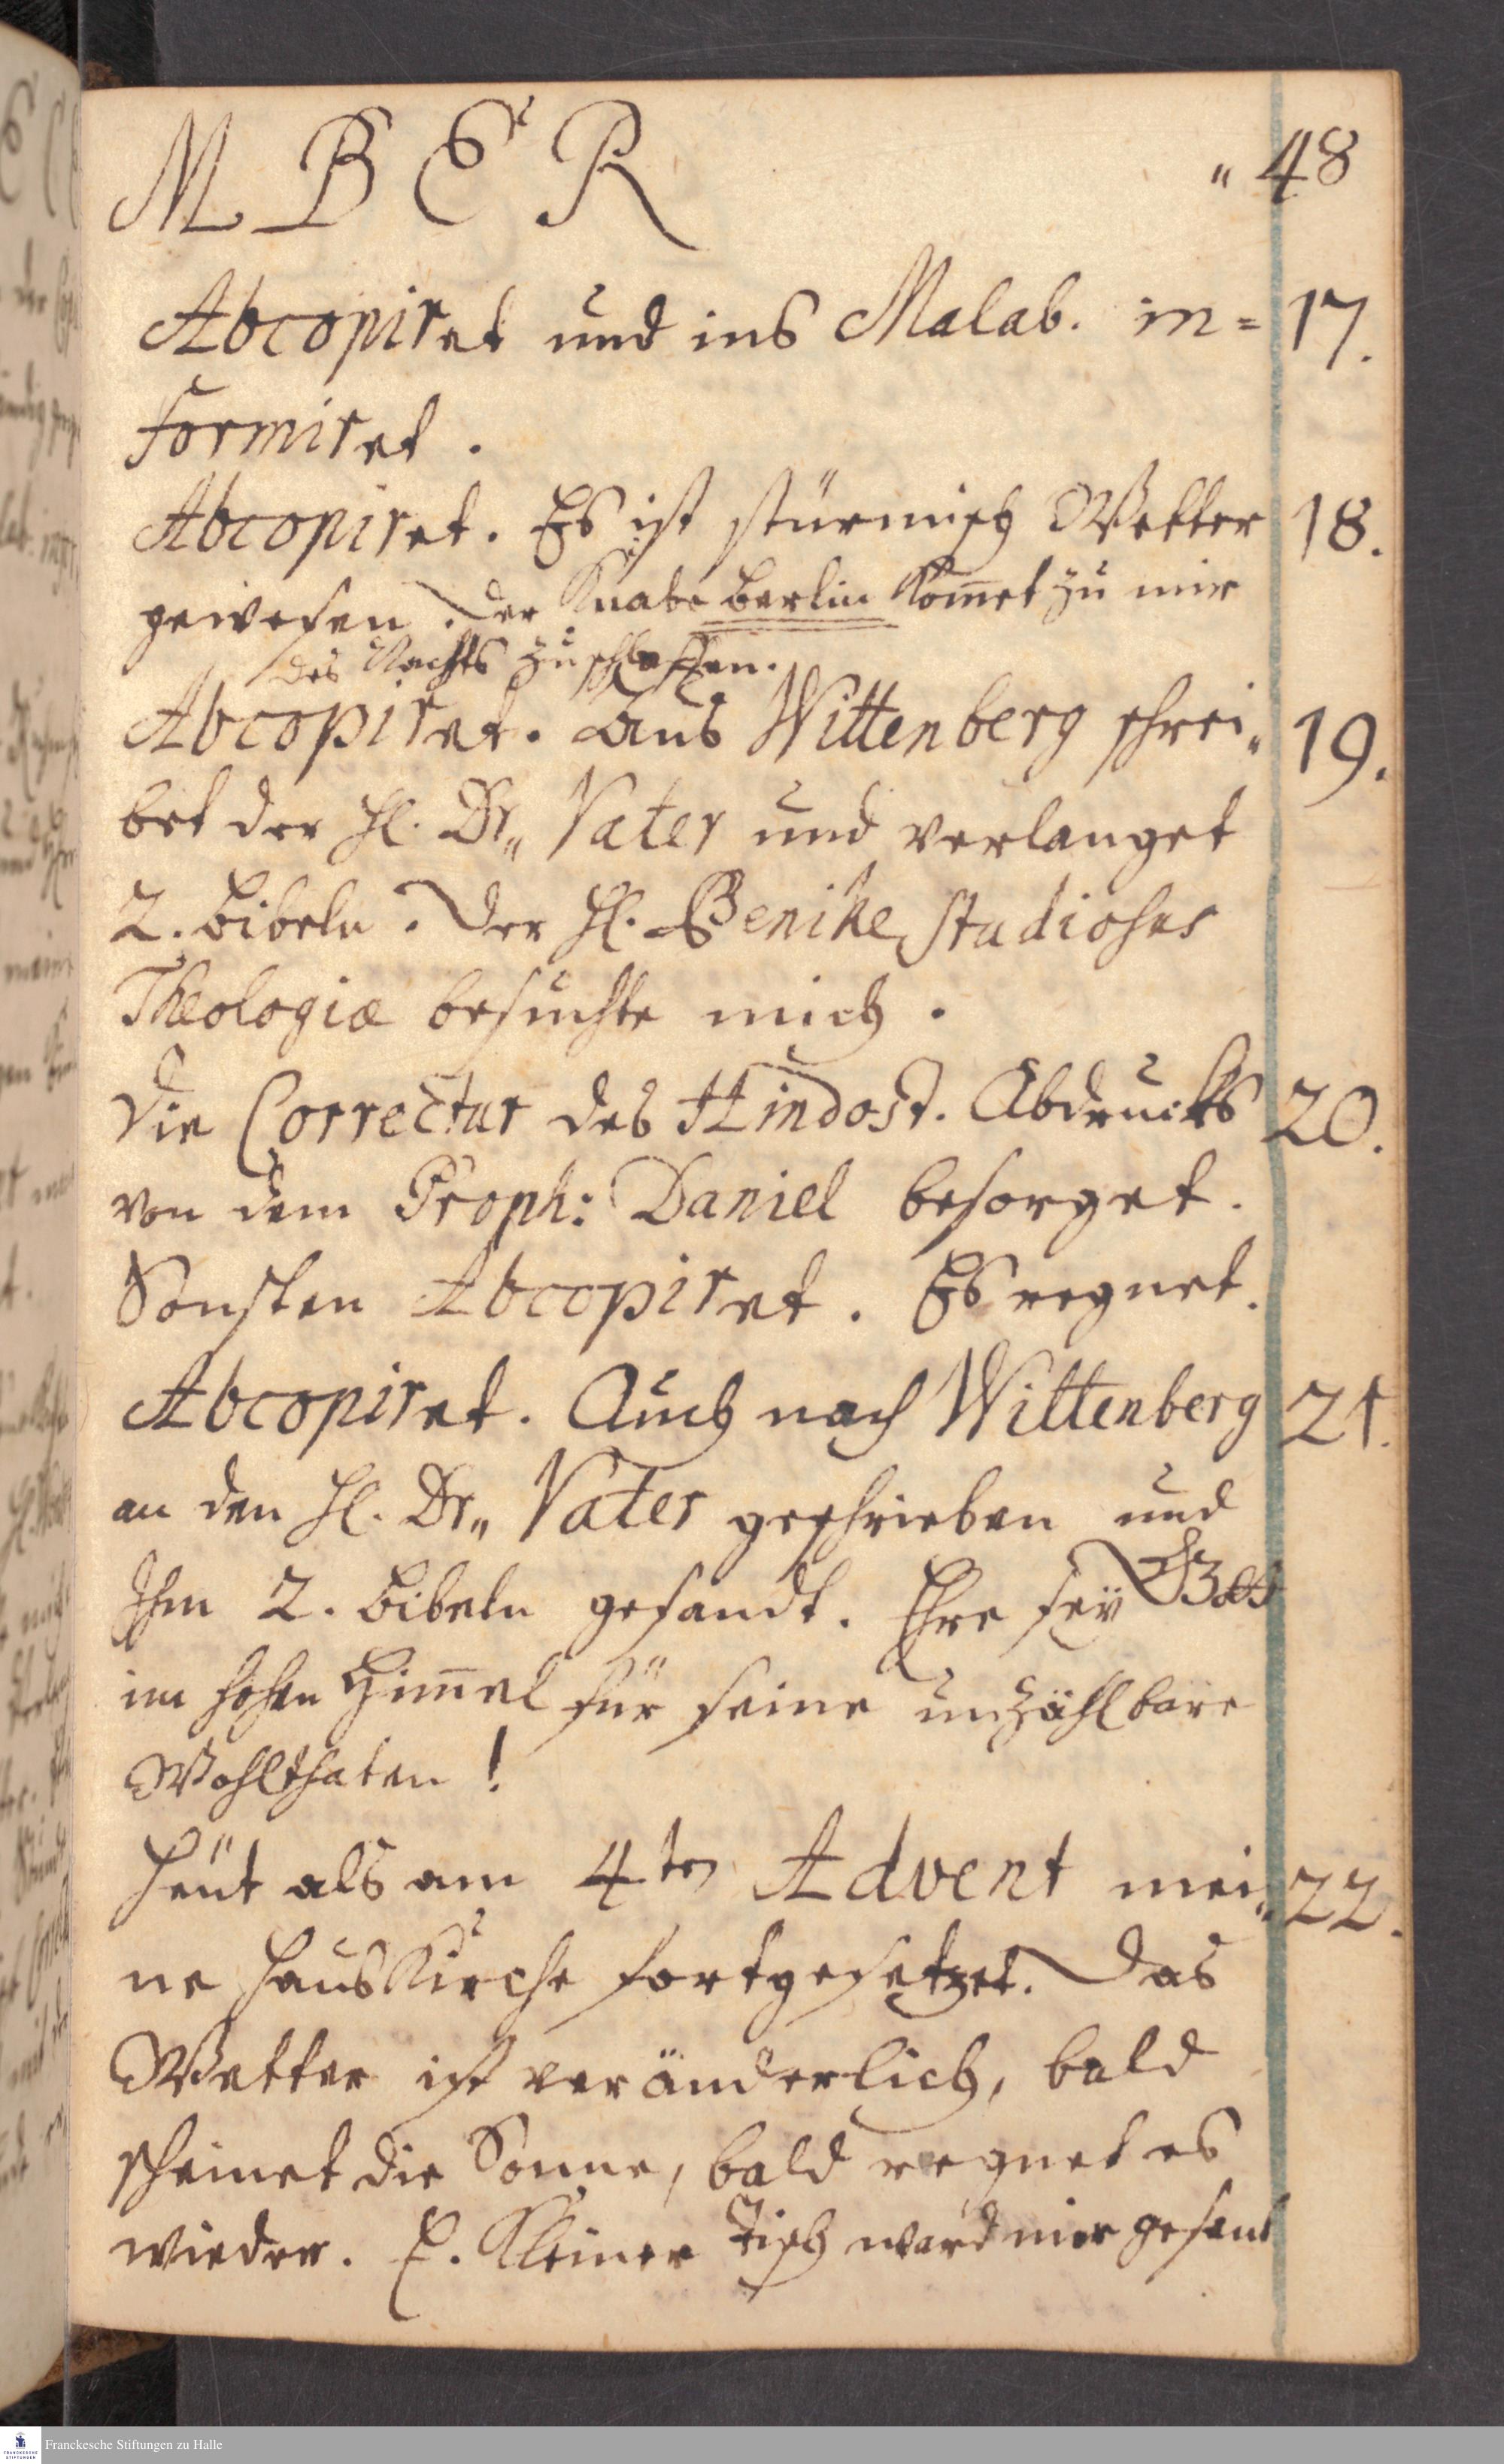 M B E R " 48
Abcopiret und ins Malab. in= 17.
formiret.
Abcopiret. Es ist stürmisch Wetter 18.
gewesen. Der Knabe Berlin kom̅et zu mir
des Nachts zu schlaffen.
Abcopiret. Aus Wittenberg schrei„ 19.
bet der H. Dr„ Vater und verlanget
2. Bibeln. Der H. Benike Studiosus
Theologiæ besuchte mich.
Die Correctur des Hindost. Abdrucks 20.
von dem Proph: Daniel besorget.
Sonsten Abcopiret. Es regnet.
Abcopiret. Auch nach Wittenberg 21.
an den H. Dr„ Vater geschrieben und
Ihm 2. Bibeln gesandt. Ehre sey Gott
im hohen Him̅el für seine unzählbare
Wohlthaten!
Heüt als am 4ten Advent mei„ 22.
ne HausKirche fortgesetzet. Das
Wetter ist veränderlich, bald
scheinet die Sonne, bald regnet es
wieder. E. Kleiner Tisch ward mir gesant
Franckesche Stiftungen zu Halle